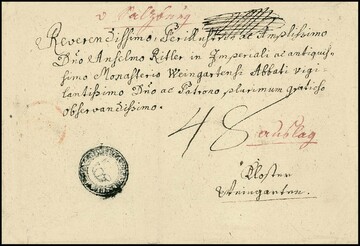 v. Salzburg
Reverendissimo, Perillustri ac Amplissimo
Dño Anselmo Ritler in Imperiali ac antiquis-
simo Monasterio Weingartensi Abbati vigi-
lantissimo Dño ac Patrono plurimum gratioso
observandissimo.
48
Closter
Weingarten.